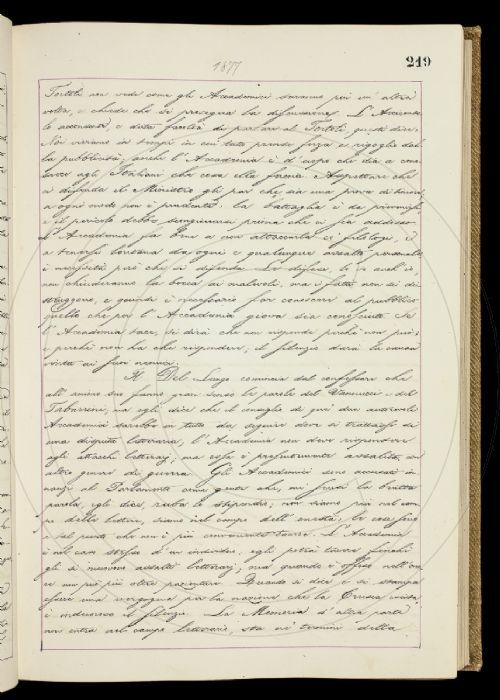 1877
219
Tortoli non vede come gli Accademici saranno più un' altra
volta, e chiede che si prosegua la discussione. L' Arciconsolo
lo acconsente e data facoltà di parlare al Tortoli questi dice:
Noi viviamo in tempi in cui tutto prende forza e rigoglio dal
la pubblicità; anche l' Accademia è d' uopo che dia a cono
scere agli Italiani che cosa ella faccia. Aspettare che
a difenda il Ministro gli par che sia una prova di
a ogni modo non è prudente. La battaglia è da
e il pericolo debbe prima che ci sia addosso.
L' Accademia fa bene a non
a tenersi lontana da ogni e qualunque assalto personale
è necessità però che si difenda. La difesa, lo sa anch' io,
non chiuderanno la bocca ai malevoli, ma i fatti non si di
struggono, e quindi è necessario far conoscere al pubblico
quello che per l' Accademia giova sia conosciuto. Se
l' Accademia tace, si dirà che non risponde perchè non può;
e perchè non ha che rispondere; il silenzio darà la causa
vinta ai suoi nemici.
Il Del Lungo comincia dal confessare che
all' animo suo fanno gran senso le parole del Vannucci e del
Tabarrini, ma egli dice che il consiglio di quei due autorevoli
Accademici sarebbe in tutto da seguir dove si trattasse di
una disputa letteraria; l' Accademia non deve rispondere
agli attacchi letterarj; ma essa è presentemente assalita con
altro genere di guerra. Gli Accademici sono accusati in
nanzi al Parlamento come gente che, mi scusi la brutta
parola, egli dice, ruba lo stipendio; non siamo più nel cam
po delle lettere, siamo nel campo dell' onestà; le cose sono
a tal punto che non è più conveniente tacere. L' Accademia
è nel caso stesso d' un individuo; egli potrà tacere finchè
gli si muovono assalti letterarj, ma quando è offeso nell' ono
re non può più oltre pazientare. Quando si dice e si stampa
essere una vergogna per la nazione che la Crusca viva,
è indecoroso il silenzio. La Memoria d' altra parte
non entra nel campo letterario, sta ne' termini della